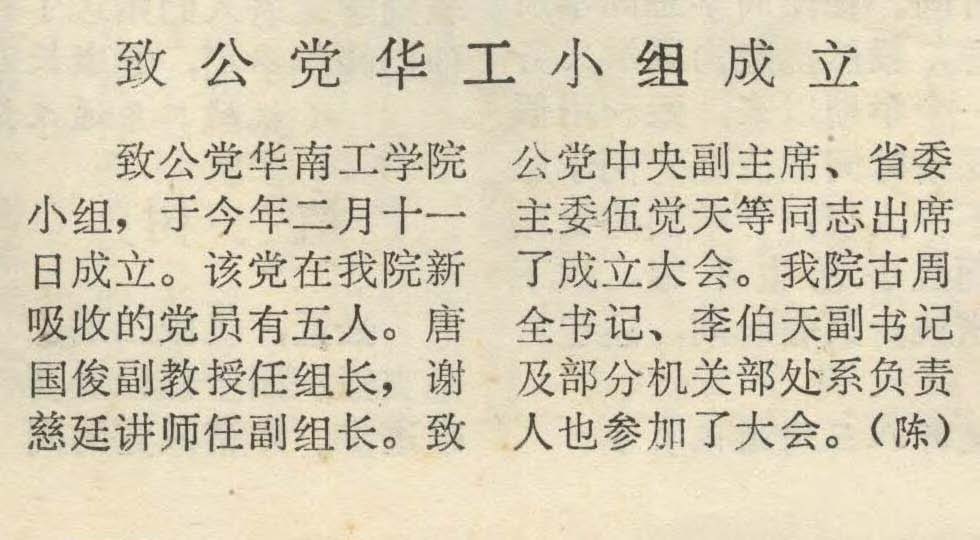 致公党华工小组成立
致公党华南工学院
小组，于今年二月十一
日成立。该党在我院新
吸收的党员有五人。唐
国俊副教授任组长，谢
慈廷讲师任副组长。致
公党中央副主席、省委
主委伍觉天等同志出席
了成立大会。我院古周
全书记、李伯天副书记
及部分机关部处系负责
人也参加了大会。（陈）